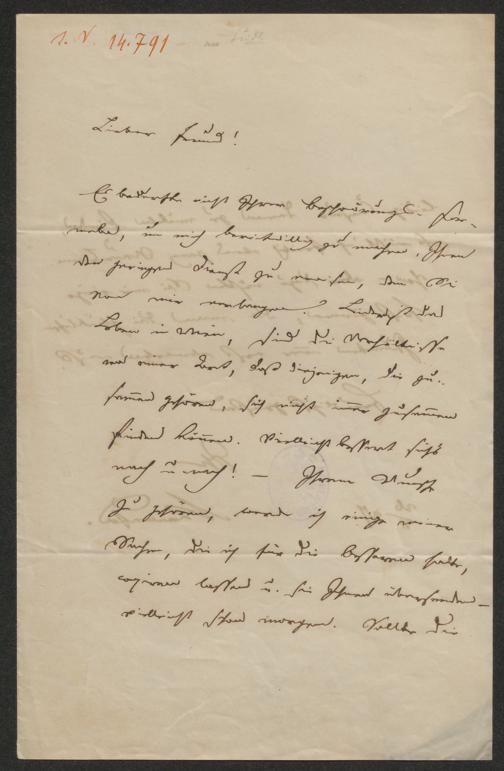 I. N. 14.791
Lieber Freund!
Es bedurfte nicht Ihrer Beschwörungs-For-
meln, um mich bereitwillig zu machen, Ihnen
den geringen Dienst zu erweisen, den Sie
von mir verlangen. Leider ist das
Leben in Wien, sind die Verhältnisse
von einer Art, daß diejenigen, die zu-
sammen gehören, sich nicht immer zusammen
finden können. Vielleicht bessert sich's
nach u. nach! — Ihrem Wunsche
zu gehören, werde ich einige meiner
Sachen, die ich für die besseren halte,
copiren lassen u. sie Ihnen übersenden —
vielleicht schon morgen. Sollte die